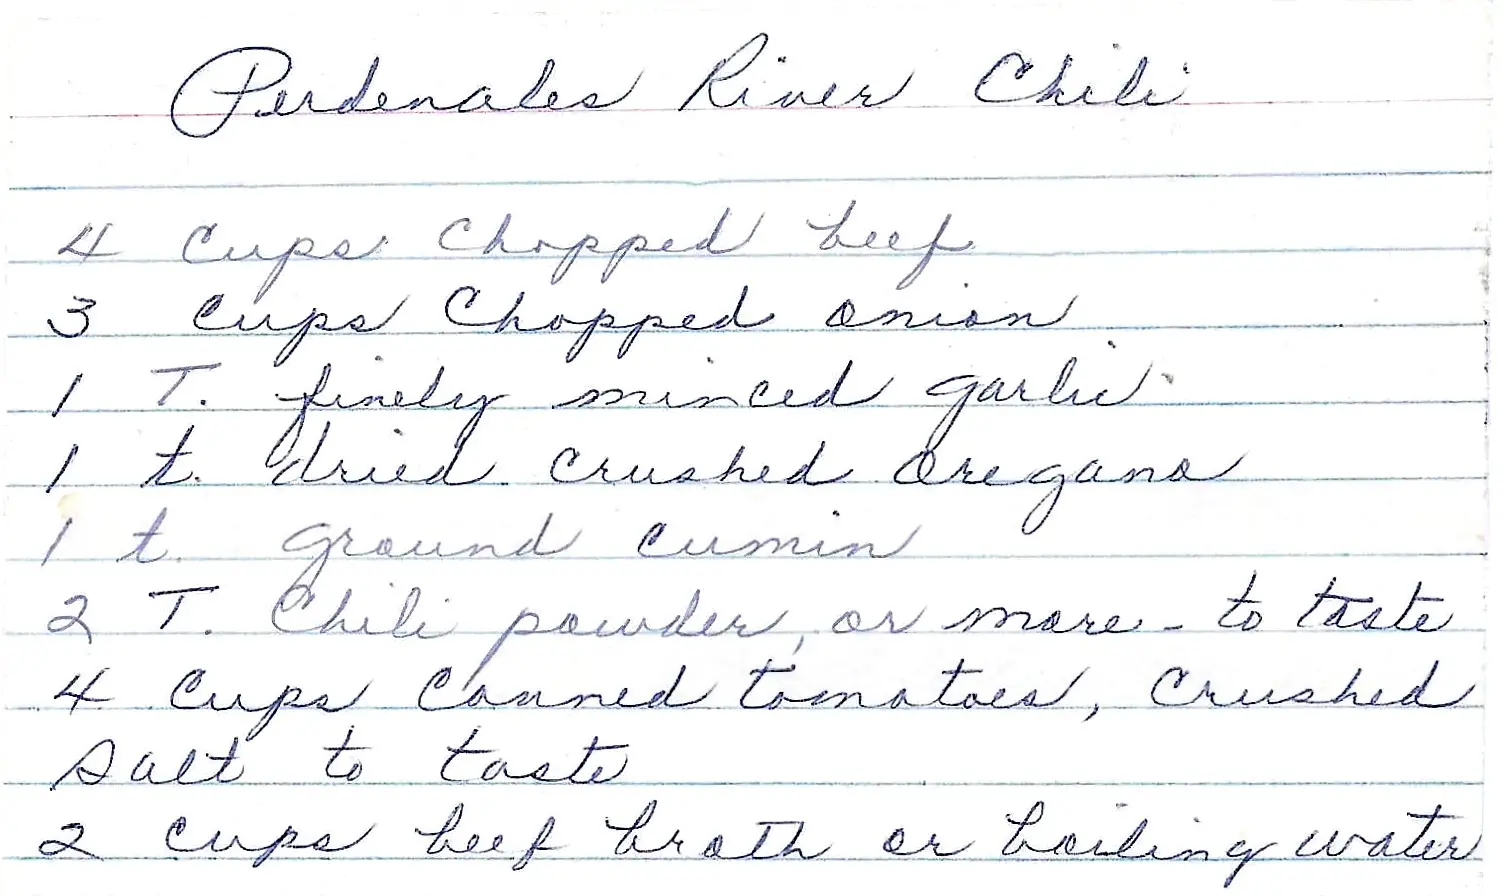 Perdenales River Chili
4 Cups Chopped beef
3 Cups Chopped onion
1 T. finely minced garlic
1 t. dried crushed oregano
1 t. ground cumin
2 T. Chili powder, or more - to taste
4 Cups Canned tomatoes, Crushed
Salt to taste
2 Cups beef broth or boiling water